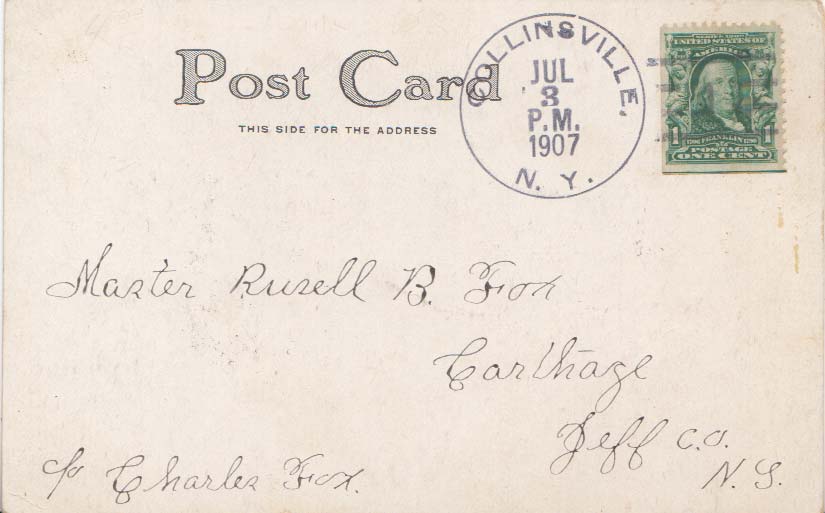 Post Card
THIS SIDE FOR THE ADDRESS
COLLINSVILLE,
JUL
3
P.M.
1907
N. Y.
UNITED STATES OF
AMERICA
1 FRANKLIN 1
POSTAGE
ONE CENT
Master Rusell B. Fox
Carthage
Jeff Co.
N. Y.
c/o Charles Fox.